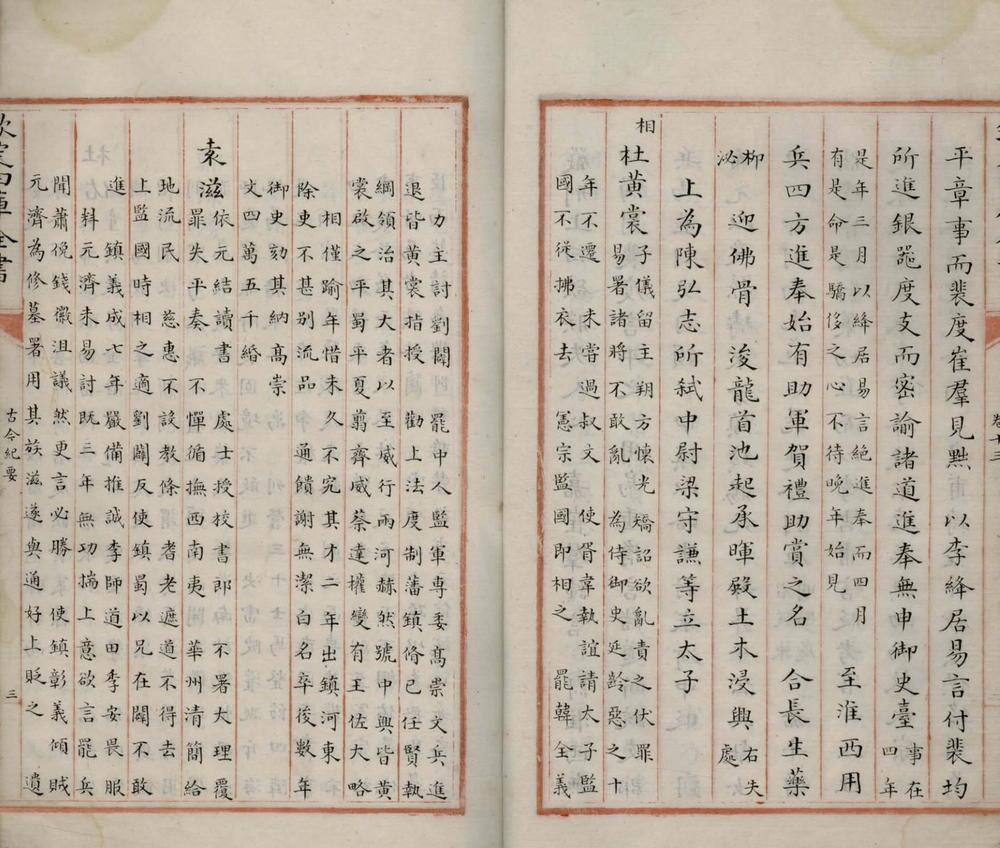 平章事而裴度崔羣見㸃 以李絳居易言付裴均
所進銀噐度支而密諭諸道進奉無申御史臺 事在
四年
是年三月以絳居易言絶進奉而四月
有是命是驕侈之心不待晚年始見 至淮西用
兵四方進奉始有助軍賀禮助賞之名 合長生藥
柳
泌 迎佛骨浚龍首池起承暉殿土木浸興 右失
處
上為陳弘志所弑中尉梁守謙等立太子
相
杜黃裳 子儀留主朔方懷光矯詔欲亂責之伏罪
易署諸將不敢亂 為侍御史延齡惡之十
年不遷 未嘗過叔文 使胥韋執誼請太子監
國不從拂衣去 憲宗監國即相之 罷韓全義
力主討劉闢 罷中人監軍専委髙崇文兵進
退皆黃裳指授 勸上法度制藩鎮脩己任賢執
綱領治其大者以至威行兩河赫然號中興皆黃
裳啟之平蜀平夏翦齊威蔡達權變有王佐大略
相僅踰年惜未久不究其才二年出鎮河東
除吏不甚别流品 通饋謝無潔白名卒後數年
御史劾其納髙崇
文四萬五千緡
袁滋 依元結讀書 處士授校書郎 不署大理覆
罪失平奏不憚循撫西南夷 華州清簡給
地流民 慈惠不設教條耆老遮道不得去
上監國時相之適劉闢反使鎮蜀以兄在闢不敢
進 鎮義成七年嚴備推誠李師道田季安畏服
料元濟未易討既三年無功揣上意欲言罷兵
聞蕭俛錢徽沮議然更言必勝 使鎮彰義傾賊
元濟為修墓署用其族滋遂與通好上貶之 遺
欽定四庫全書
古今紀要
三